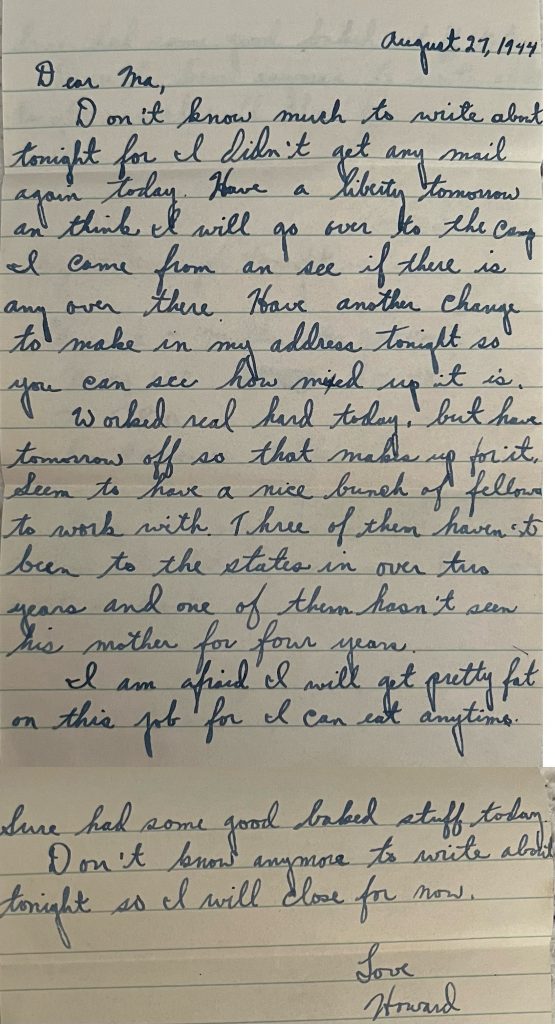 August 27, 1944
Dear Ma,
Don't know much to write about
tonight for I didn't get any mail
again today. Have a liberty tomorrow
an think I will go over to the camp
I came from an see if there is
any over there. Have another change
to make in my address tonight so
you can see how mixed up it is.
Worked real hard today, but have
tomorrow off so that makes up for it.
Seem to have a nice bunch of fellows
to work with. Three of them haven't
been to the states in over two
years and one of them hasn't seen
his mother for four years.
I am afraid I will get pretty fat
on this job for I can eat anytime.
Sure had some good baked stuff today.
Don't know anymore to write about
tonight so I will close for now.
Love
Howard